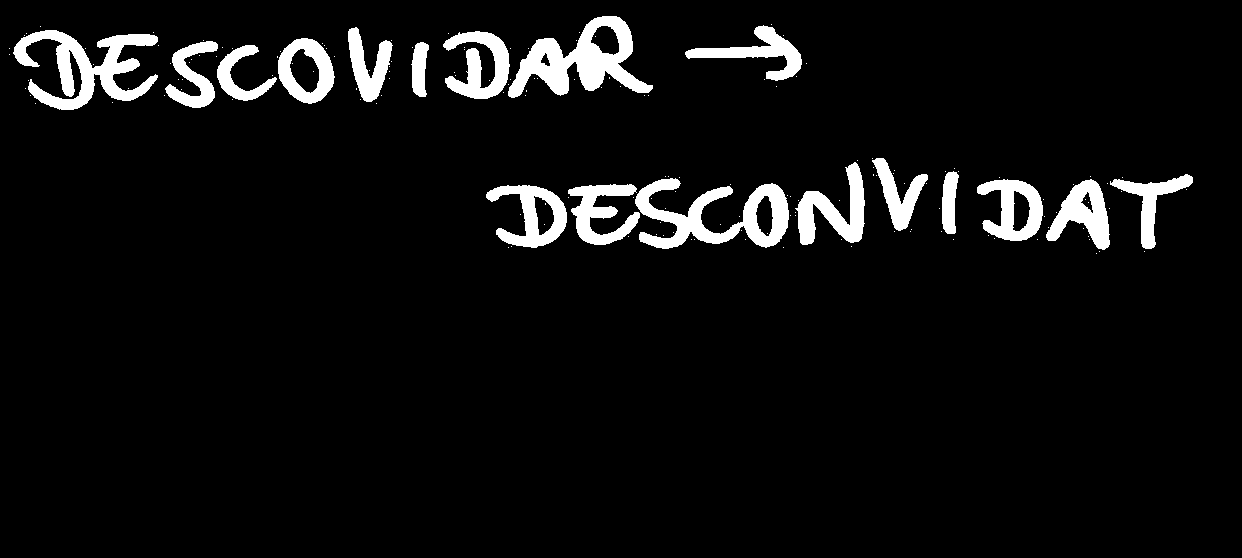 DESCOVIDAR →
DESCONVIDAT